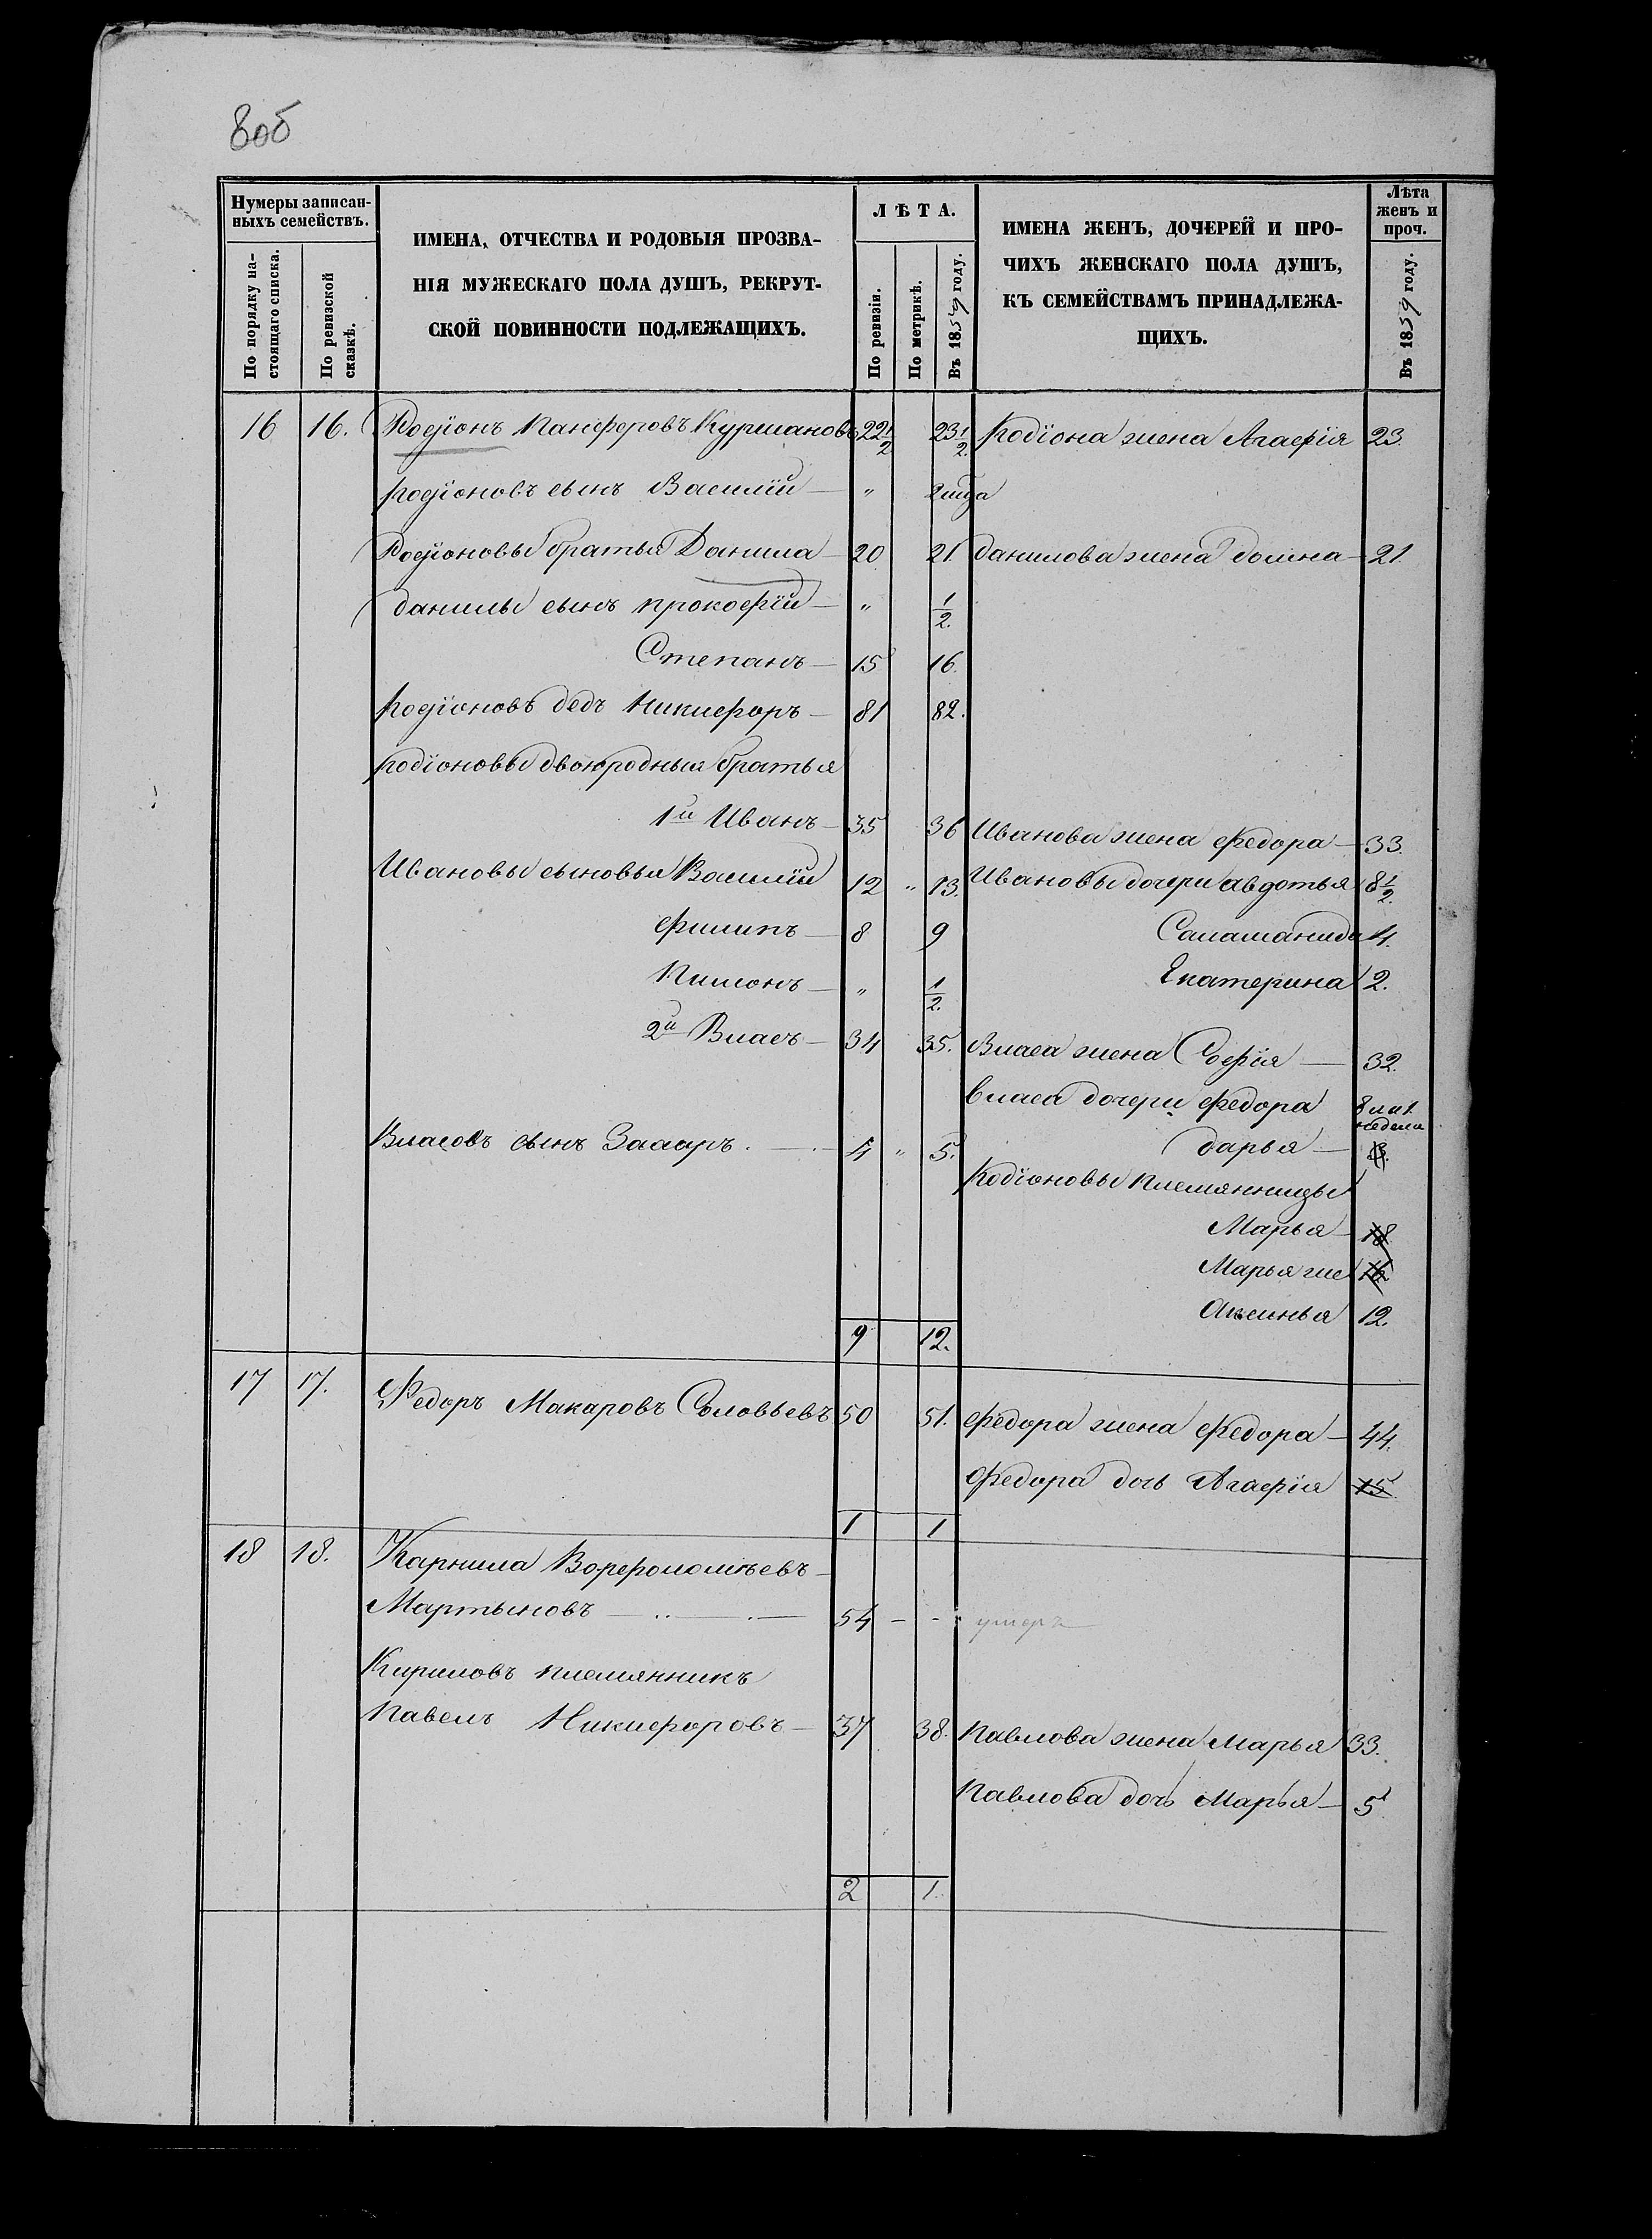 8об
Нумеры записан-
ныхъ семействъ.
По порядку на-
стоящаго списка.
По ревизской
сказкѣ.
ИМЕНА, ОТЧЕСТВА И РОДОВЫЯ ПРОЗВА-
НІЯ МУЖЕСКАГО ПОЛА ДУШЪ, РЕКРУТ-
СКОЙ ПОВИННОСТИ ПОДЛЕЖАЩИХЪ.
ЛѢТА.
По ревизіи.
По метрикѣ.
Въ 1859 году.
ИМЕНА ЖЕНЪ, ДОЧЕРЕЙ И ПРО-
ЧИХЪ ЖЕНСКАГО ПОЛА ДУШЪ,
КЪ СЕМЕЙСТВАМЪ ПРИНАДЛЕЖА-
ЩИХЪ.
Лѣта
женъ и
проч.
Въ 1859 году.
16 16. Родіонъ Панферовъ Куршановъ 22 1/2 23 1/2. Родіона жена Агафія 23
Родіоновъ сынъ Василій — „
Родіоновы братья Данила — 20 21. Данилова жена Домна — 21.
Данилы сынъ Прокофій — „ 1/2.
Степанъ — 15 16.
Родіоновъ дедъ Никифоръ — 81 82.
Родіоновы двоюродныя братья
1й Иванъ — 35 36 Иванова жена Федора — 33.
Ивановы сыновья Василій 12 „ 13. Ивановы дочери Авдотья 8 1/2.
Филипъ — 8 9 Саламанида 4.
Пимонъ — „ 1/2. Екатерина 2.
2й Власъ — 34 35. Власа жена Софія — 32.
Власа дочери Федора 8 и 1. недели
Власовъ сынъ Захаръ. — 4 „ 5. Дарья — 3.
Родіоновы племянницы
Марья — 18.
Марья же 16
Аксинья 12.
9 12.
17 17. Федоръ Макаровъ Соловьевъ 50 51. Федора жена Федора — 44.
Федора дочь Агафія 15
1 1
18 18. Карнила Ворфоломѣевъ
Мартыновъ — 54 — - умеръ
Кириловъ племянникъ
Павелъ Никифоровъ — 37 38. Павлова жена Марья 33.
Павлова дочь Марья — 5
2 1.